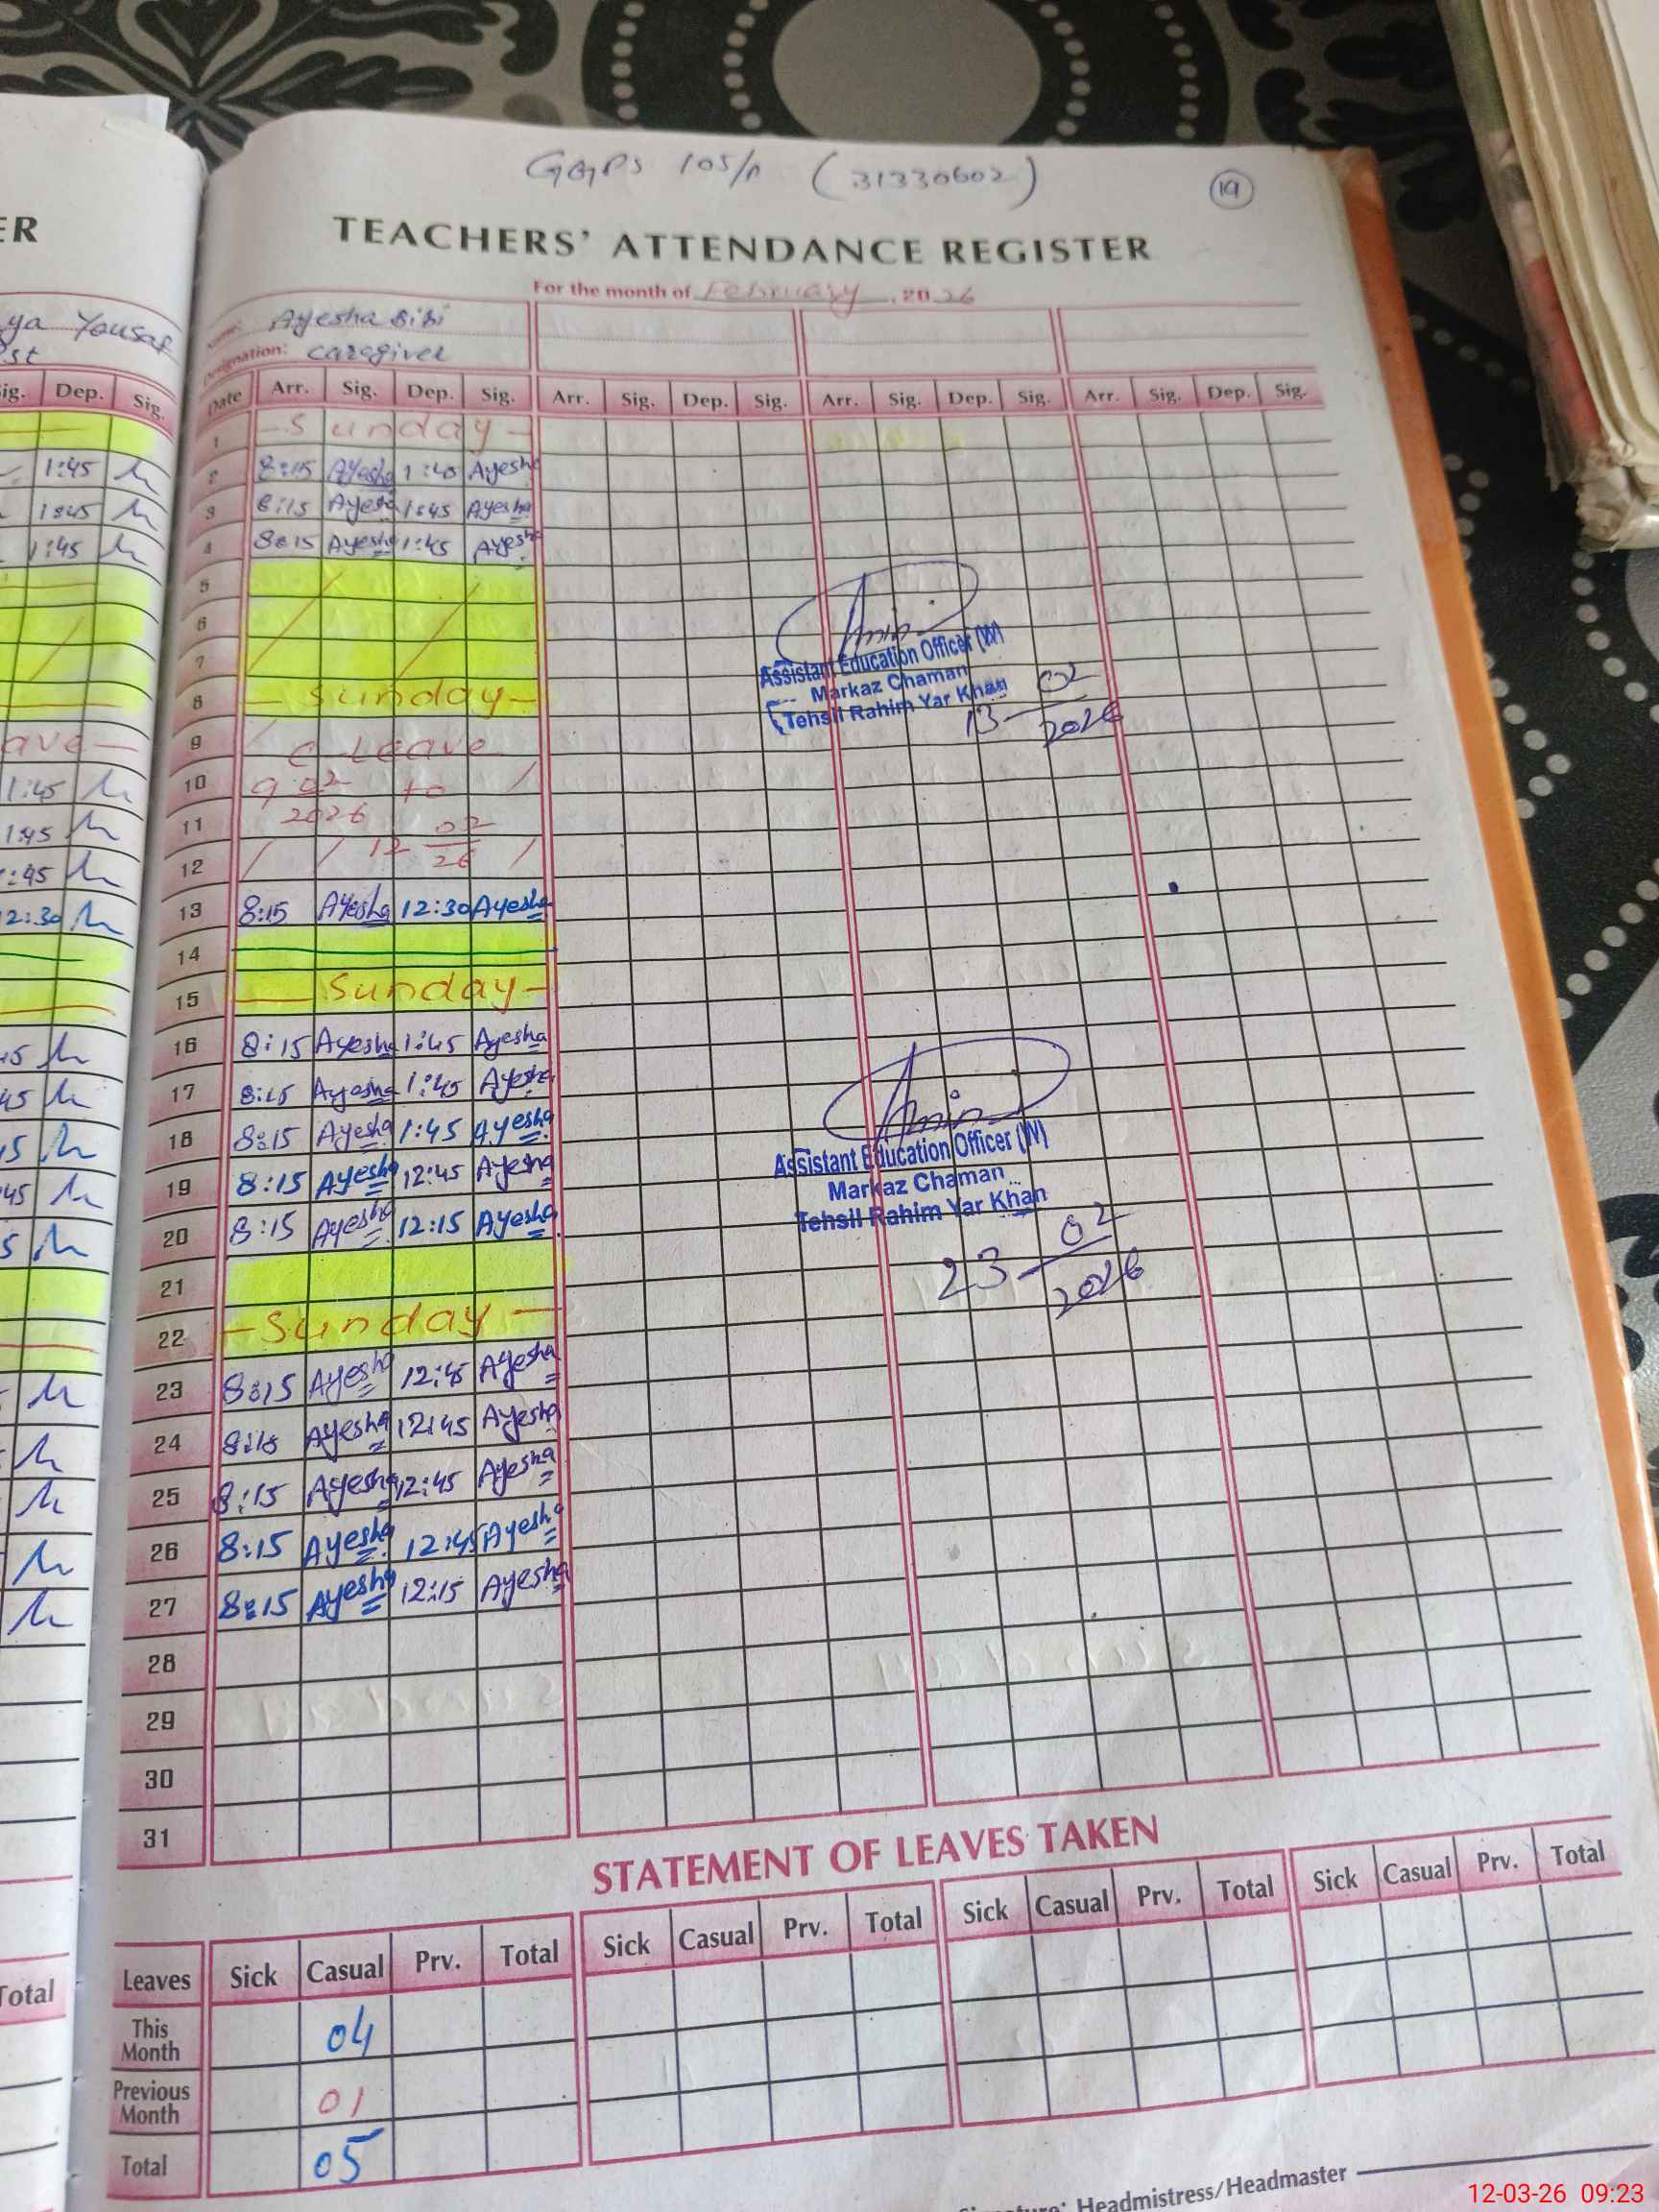 GGPS 105/P (31330602)
19
TEACHERS' ATTENDANCE REGISTER
For the month of February, 2026
Name: Ayesha Bibi
Designation: caregiver
Date Arr. Sig. Dep. Sig. Arr. Sig. Dep. Sig. Arr. Sig. Dep. Sig. Arr. Sig. Dep. Sig.
1 - Sunday -
2 8:15 Ayesha 1:45 Ayesha
3 8:15 Ayesha 1:45 Ayesha
4 8:15 Ayesha 1:45 Ayesha
5
6
7
8 - Sunday -
9 C Leave
10 9 02 to
11 2026 02
12 12 26
13 8:15 Ayesha 12:30 Ayesha
14
15 Sunday -
16 8:15 Ayesha 1:45 Ayesha
17 8:15 Ayesha 1:45 Ayesha
18 8:15 Ayesha 1:45 Ayesha
19 8:15 Ayesha 12:45 Ayesha
20 8:15 Ayesha 12:15 Ayesha
21
22 - Sunday -
23 8:15 Ayesha 12:45 Ayesha
24 8:15 Ayesha 12:45 Ayesha
25 8:15 Ayesha 12:45 Ayesha
26 8:15 Ayesha 12:45 Ayesha
27 8:15 Ayesha 12:15 Ayesha
28
29
30
31
Amin
Assistant Education Officer (W)
Markaz Chaman
Tehsil Rahim Yar Khan
13 02
2026
Amin
Assistant Education Officer (W)
Markaz Chaman
Tehsil Rahim Yar Khan
23 02
2026
STATEMENT OF LEAVES TAKEN
Leaves Sick Casual Prv. Total Sick Casual Prv. Total Sick Casual Prv. Total Sick Casual Prv. Total
This Month 04
Previous Month 01
Total 05
Headmistress/Headmaster
ER
ya Yousaf
Sig. Dep. Sig.
1:45
1:45
1:45
ave -
1:45
1:45
1:45
12:30
45
45
15
45
5
Total
12-03-26 09:23